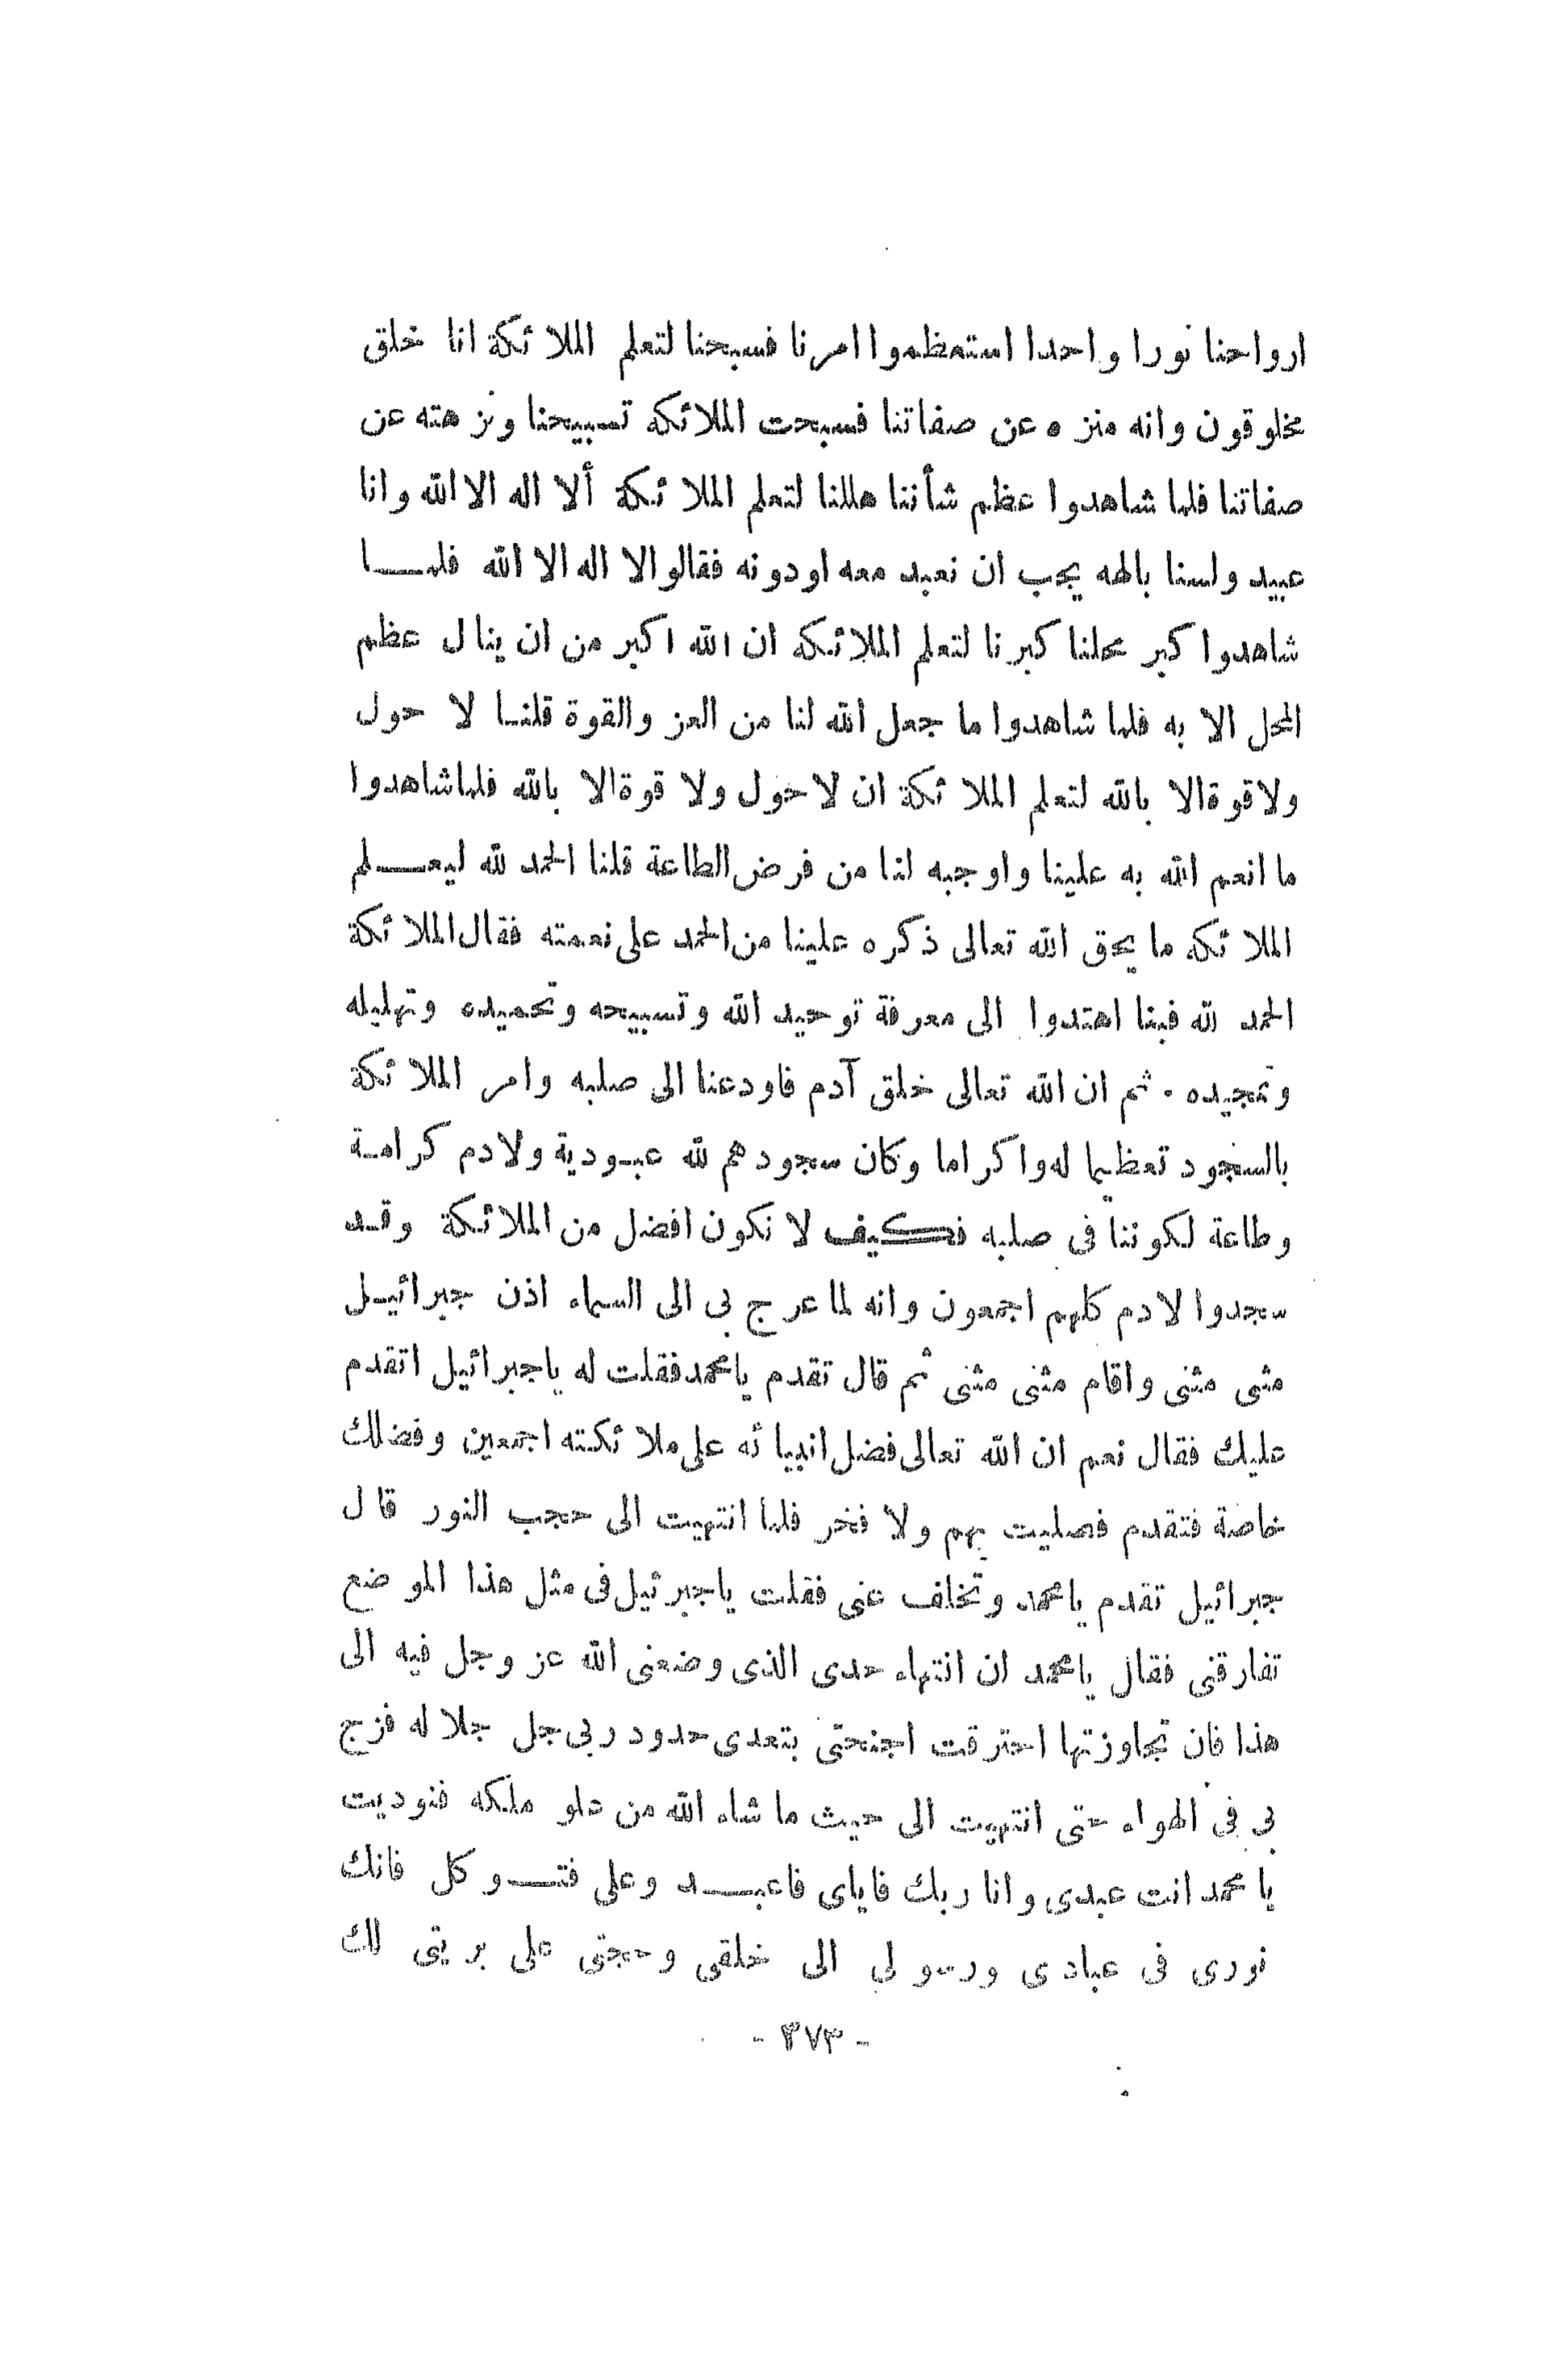 ارواحنا نورا واحدا استعظموا امرنا فسبحنا لتعلم الملائكة انا خلق
مخلوقون وانه منزه عن صفاتنا فسبحت الملائكة تسبيحنا ونزهته عن
صفاتنا فلما شاهدوا عظم شأننا هللنا لتعلم الملائكة ألا اله الا الله وانا
عبيد ولسنا بالهه يجب ان نعبد معه اودونه فقالوا لا اله الا الله فلمـــا
شاهدوا كبر محلنا كبرنا لتعلم الملائكه ان الله اكبر من ان ينال عظم
المحل الا به فلما شاهدوا ما جعل الله لنا من العز والقوة قلنـا لا حول
ولاقوة الا بالله لتعلم الملائكة ان لاحول ولا قوة الا بالله فلما شاهدوا
ما انعم الله به علينا واوجبه لنا من فرض الطاعة قلنا الحمد لله ليعـــلم
الملائكه ما يحق الله تعالى ذكره علينا من الحمد على نعمته فقال الملائكة
الحمد لله فبنا اهتدوا الى معرفة توحيد الله وتسبيحه وتحميده وتهليله
وتمجيده . ثم ان الله تعالى خلق آدم فاودعنا الى صلبه وامر الملائكة
بالسجود تعظيما له واكراما وكان سجودهم لله عبـودية ولادم كرامـة
وطاعة لكوننا فى صلبه فكيف لا نكون افضل من الملائكة وقـد
سجدوا لادم كلهم اجمعون وانه لما عرج بى الى السماء اذن جبرائيـل
مثى مثنى واقام مثنى مثنى ثم قال تقدم يامحمد فقلت له ياجبرائيل اتقدم
عليك فقال نعم ان الله تعالى فضل انبيائه على ملائكته اجمعين وفضلك
خاصة فتقدم فصليت بهم ولا فخر فلما انتهيت الى حجب النور قال
جبرائيل تقدم يامحمد وتخلف عنى فقلت ياجبرئيل فى مثل هذا الموضع
تفارقنى فقال يامحمد ان انتهاء حدى الذى وضعنى الله عز وجل فيه الى
هذا فان تجاوزتها احترقت اجنحتى بتعدى حدود ربى جل جلاله فزج
بى فى الهواء حتى انتهيت الى حيث ما شاء الله من علو ملكه فنوديت
يا محمد انت عبدى وانا ربك فاياى فاعبـــد وعلى فتـــوكل فانك
نورى فى عبادى ورسولى الى خلقى وحجتى على بريتى لك
- ٣٧٣ -